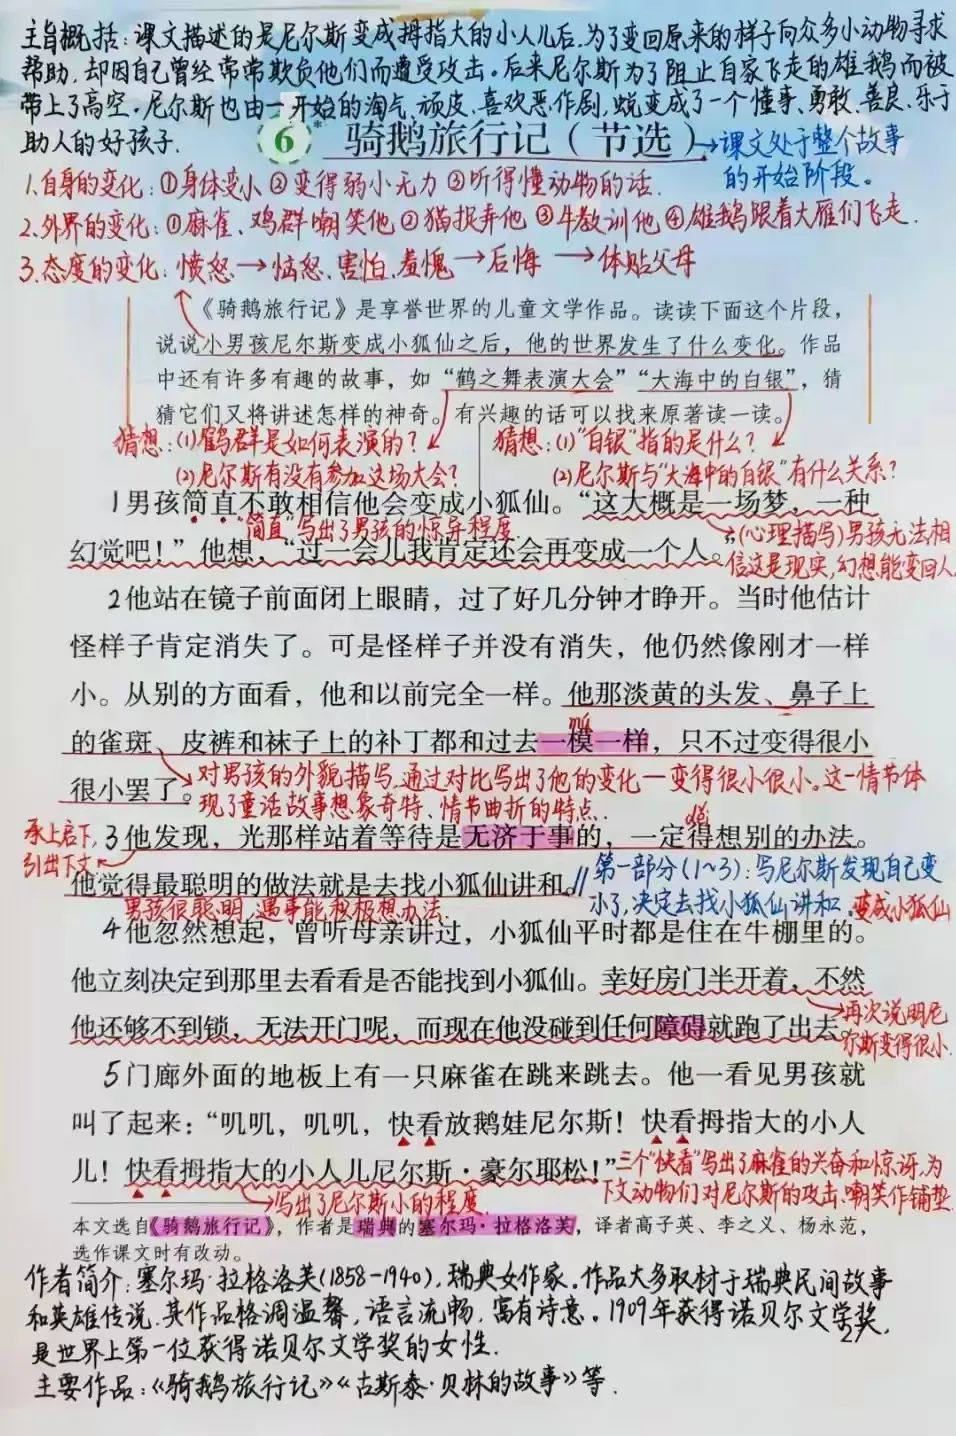 主旨概括：课文描述的是尼尔斯变成拇指大的小人儿后，为了变回原来的样子向众多小动物寻求
帮助，却因自己曾经常常欺负他们而遭受攻击。后来尼尔斯为了阻止自家飞走的雄鹅而被
带上了高空。尼尔斯也由一开始的淘气、顽皮、喜欢恶作剧，蜕变成了一个懂事、勇敢、善良、乐于
助人的好孩子.
6* 骑鹅旅行记（节选）
课文处于整个故事
的开始阶段。
1.自身的变化：①身体变小 ②变得弱小无力 ③听得懂动物的话.
2.外界的变化：①麻雀、鸡群嘲笑他 ②猫捉弄他 ③牛教训他 ④雄鹅跟着大雁们飞走.
3.态度的变化：愤怒→恼怒、害怕、羞愧→后悔→体贴父母
《骑鹅旅行记》是享誉世界的儿童文学作品。读读下面这个片段，
说说小男孩尼尔斯变成小狐仙之后，他的世界发生了什么变化。作品
中还有许多有趣的故事，如“鹤之舞表演大会”“大海中的白银”，猜
猜它们又将讲述怎样的神奇。有兴趣的话可以找来原著读一读。
猜想：(1)鹤群是如何表演的？
(2)尼尔斯有没有参加这场大会？
猜想：(1)“白银”指的是什么？
(2)尼尔斯与“大海中的白银”有什么关系？
1男孩简直不敢相信他会变成小狐仙。“这大概是一场梦，一种
“简直”写出了男孩的惊讶程度.
幻觉吧！”他想，“过一会儿我肯定还会再变成一个人。”
(心理描写)男孩无法相
信这是现实，幻想能变回人.
2他站在镜子前面闭上眼睛，过了好几分钟才睁开。当时他估计
怪样子肯定消失了。可是怪样子并没有消失，他仍然像刚才一样
小。从别的方面看，他和以前完全一样。他那淡黄的头发、鼻子上
mú
的雀斑、皮裤和袜子上的补丁都和过去一模一样，只不过变得很小
很小罢了。
对男孩的外貌描写，通过对比写出了他的变化一变得很小很小。这一情节体
现了童话故事想象奇特、情节曲折的特点.
děi
承上启下，
引出下文
3他发现，光那样站着等待是无济于事的，一定得想别的办法。
他觉得最聪明的做法就是去找小狐仙讲和。//
男孩很聪明，遇事能积极想办法.
第一部分(1~3)：写尼尔斯发现自己变
小了，决定去找小狐仙讲和。变成小狐仙
4他忽然想起，曾听母亲讲过，小狐仙平时都是住在牛棚里的。
他立刻决定到那里去看看是否能找到小狐仙。幸好房门半开着，不然
他还够不到锁，无法开门呢，而现在他没碰到任何障碍就跑了出去。
再次说明尼
尔斯变得很小.
5门廊外面的地板上有一只麻雀在跳来跳去。他一看见男孩就
叫了起来：“叽叽，叽叽，快看放鹅娃尼尔斯！快看拇指大的小人
儿！快看拇指大的小人儿尼尔斯·豪尔耶松！”
三个“快看”写出了麻雀的兴奋和惊讶，为
下文动物们对尼尔斯的攻击、嘲笑作铺垫.
写出了尼尔斯小的程度.
本文选自《骑鹅旅行记》，作者是瑞典的塞尔玛·拉格洛芙，译者高子英、李之义、杨永范，
选作课文时有改动。
作者简介：塞尔玛·拉格洛芙(1858-1940)，瑞典女作家。作品大多取材于瑞典民间故事
和英雄传说，其作品格调温馨，语言流畅，富有诗意。1909年获得诺贝尔文学奖，
27
是世界上第一位获得诺贝尔文学奖的女性.
主要作品：《骑鹅旅行记》《古斯泰·贝林的故事》等.